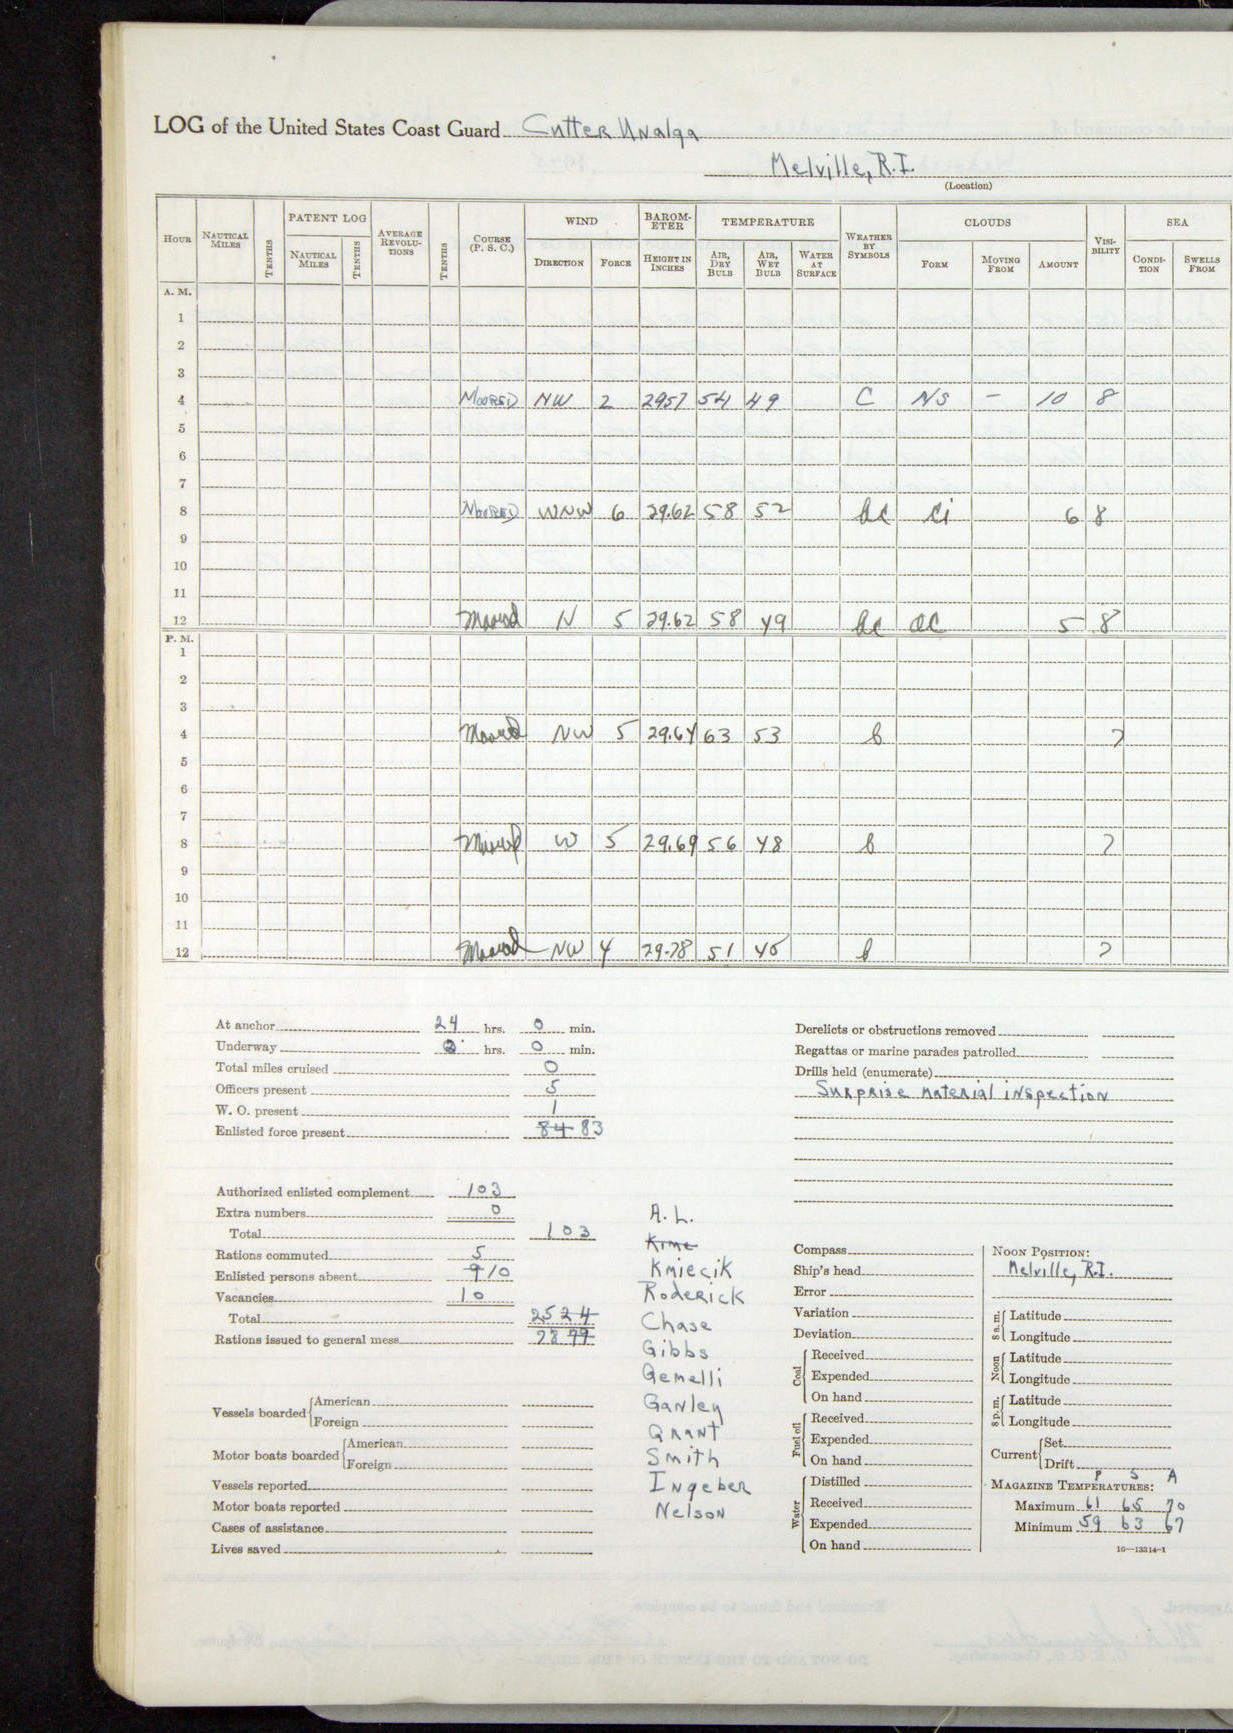 LOG of the United States Coast Guard Cutter Unalga
Melville, R.I.
(Location)
HOUR NAUTICAL MILES TENTHS PATENT LOG NAUTICAL MILES TENTHS AVERAGE REVOLU-TIONS TENTHS COURSE (P. S. C.) WIND DIRECTION FORCE BAROM-ETER HEIGHT IN INCHES TEMPERATURE AIR, DRY BULB AIR, WET BULB WATER AT SURFACE WEATHER BY SYMBOLS CLOUDS FORM MOVING FROM AMOUNT VISI-BILITY SEA CONDI-TION SWELLS FROM
A. M.
1
2
3
4 MOORED NW 2 2957 54 49 C NS - 10 8
5
6
7
8 MOORED WNW 6 29.62 58 52 bc Ci 6 8
9
10
11
12 Moored N 5 29.62 58 49 bc ac 5 8
P. M.
1
2
3
4 Moored NW 5 29.64 63 53 b 7
5
6
7
8 Moored W 5 29.69 56 48 b 7
9
10
11
12 Moored NW 4 29.78 51 45 b 7
At anchor 24 hrs. 0 min.
Underway 0 hrs. 0 min.
Total miles cruised 0
Officers present 5
W. O. present 1
Enlisted force present 84 83
Authorized enlisted complement 103
Extra numbers 0
Total 103
Rations commuted 5
Enlisted persons absent 9 10
Vacancies 10
Total 25 24
Rations issued to general mess 78 79
Vessels boarded American
Foreign
Motor boats boarded American
Foreign
Vessels reported
Motor boats reported
Cases of assistance
Lives saved
A. L.
Kime
Kmiecik
Roderick
Chase
Gibbs
Gemelli
Ganley
Grant
Smith
Ingeber
Nelson
Derelicts or obstructions removed
Regattas or marine parades patrolled
Drills held (enumerate)
Surprise material inspection
Compass
Ship's head
Error
Variation
Deviation
Coal Received
Expended
On hand
Fuel oil Received
Expended
On hand
Water Distilled
Received
Expended
On hand
NOON POSITION:
Melville, R.I.
8 a. m. Latitude
Longitude
Noon Latitude
Longitude
8 p. m. Latitude
Longitude
Current Set
Drift
P S A
MAGAZINE TEMPERATURES:
Maximum 61 65 70
Minimum 59 63 67
16—13314-1